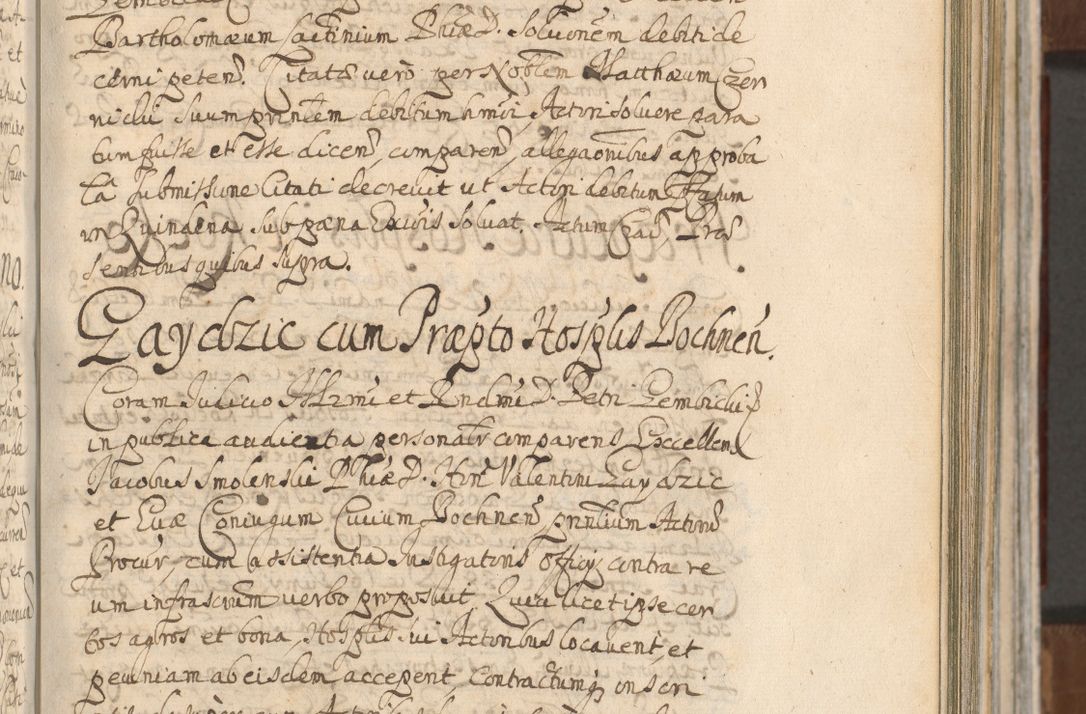 Bartholomæum Sactinium Phiæ D. Solutionem debiti de
cerni peten. Citatus vero per Noblem Matthæum Czer
nicki suum prinlem debitum hmoi Actori solvere para
tum fuisse et esse dicen comparen, allegaonibus approba
ta submissione Citati decrevit ut Actori debitum fatum
in Quindena sub pæna Excõis solvat. Actum Crac, Præ
sentibus quibus supra.
Gaydzic cum Præpto Hosplis Bochnen.
Coram Judicio Illrmi et Rndmi D. Petri Gembicki
in publica audientia personaltr comparens Excellens
Jacobus Smolenski Phiæ D. Hon Valentini Gaydzic
et Evæ Coniugum Civium Bochnen prinlium Actorum
Procur, cum assistentia Instigatoris officij contra re
um infrascrum verbo proposuit Quia licet ipse cer
tos agros et bona Hosplis sui Actoribus locaverit et
pecuniam ab eisdem acceperit Contractumq inscri